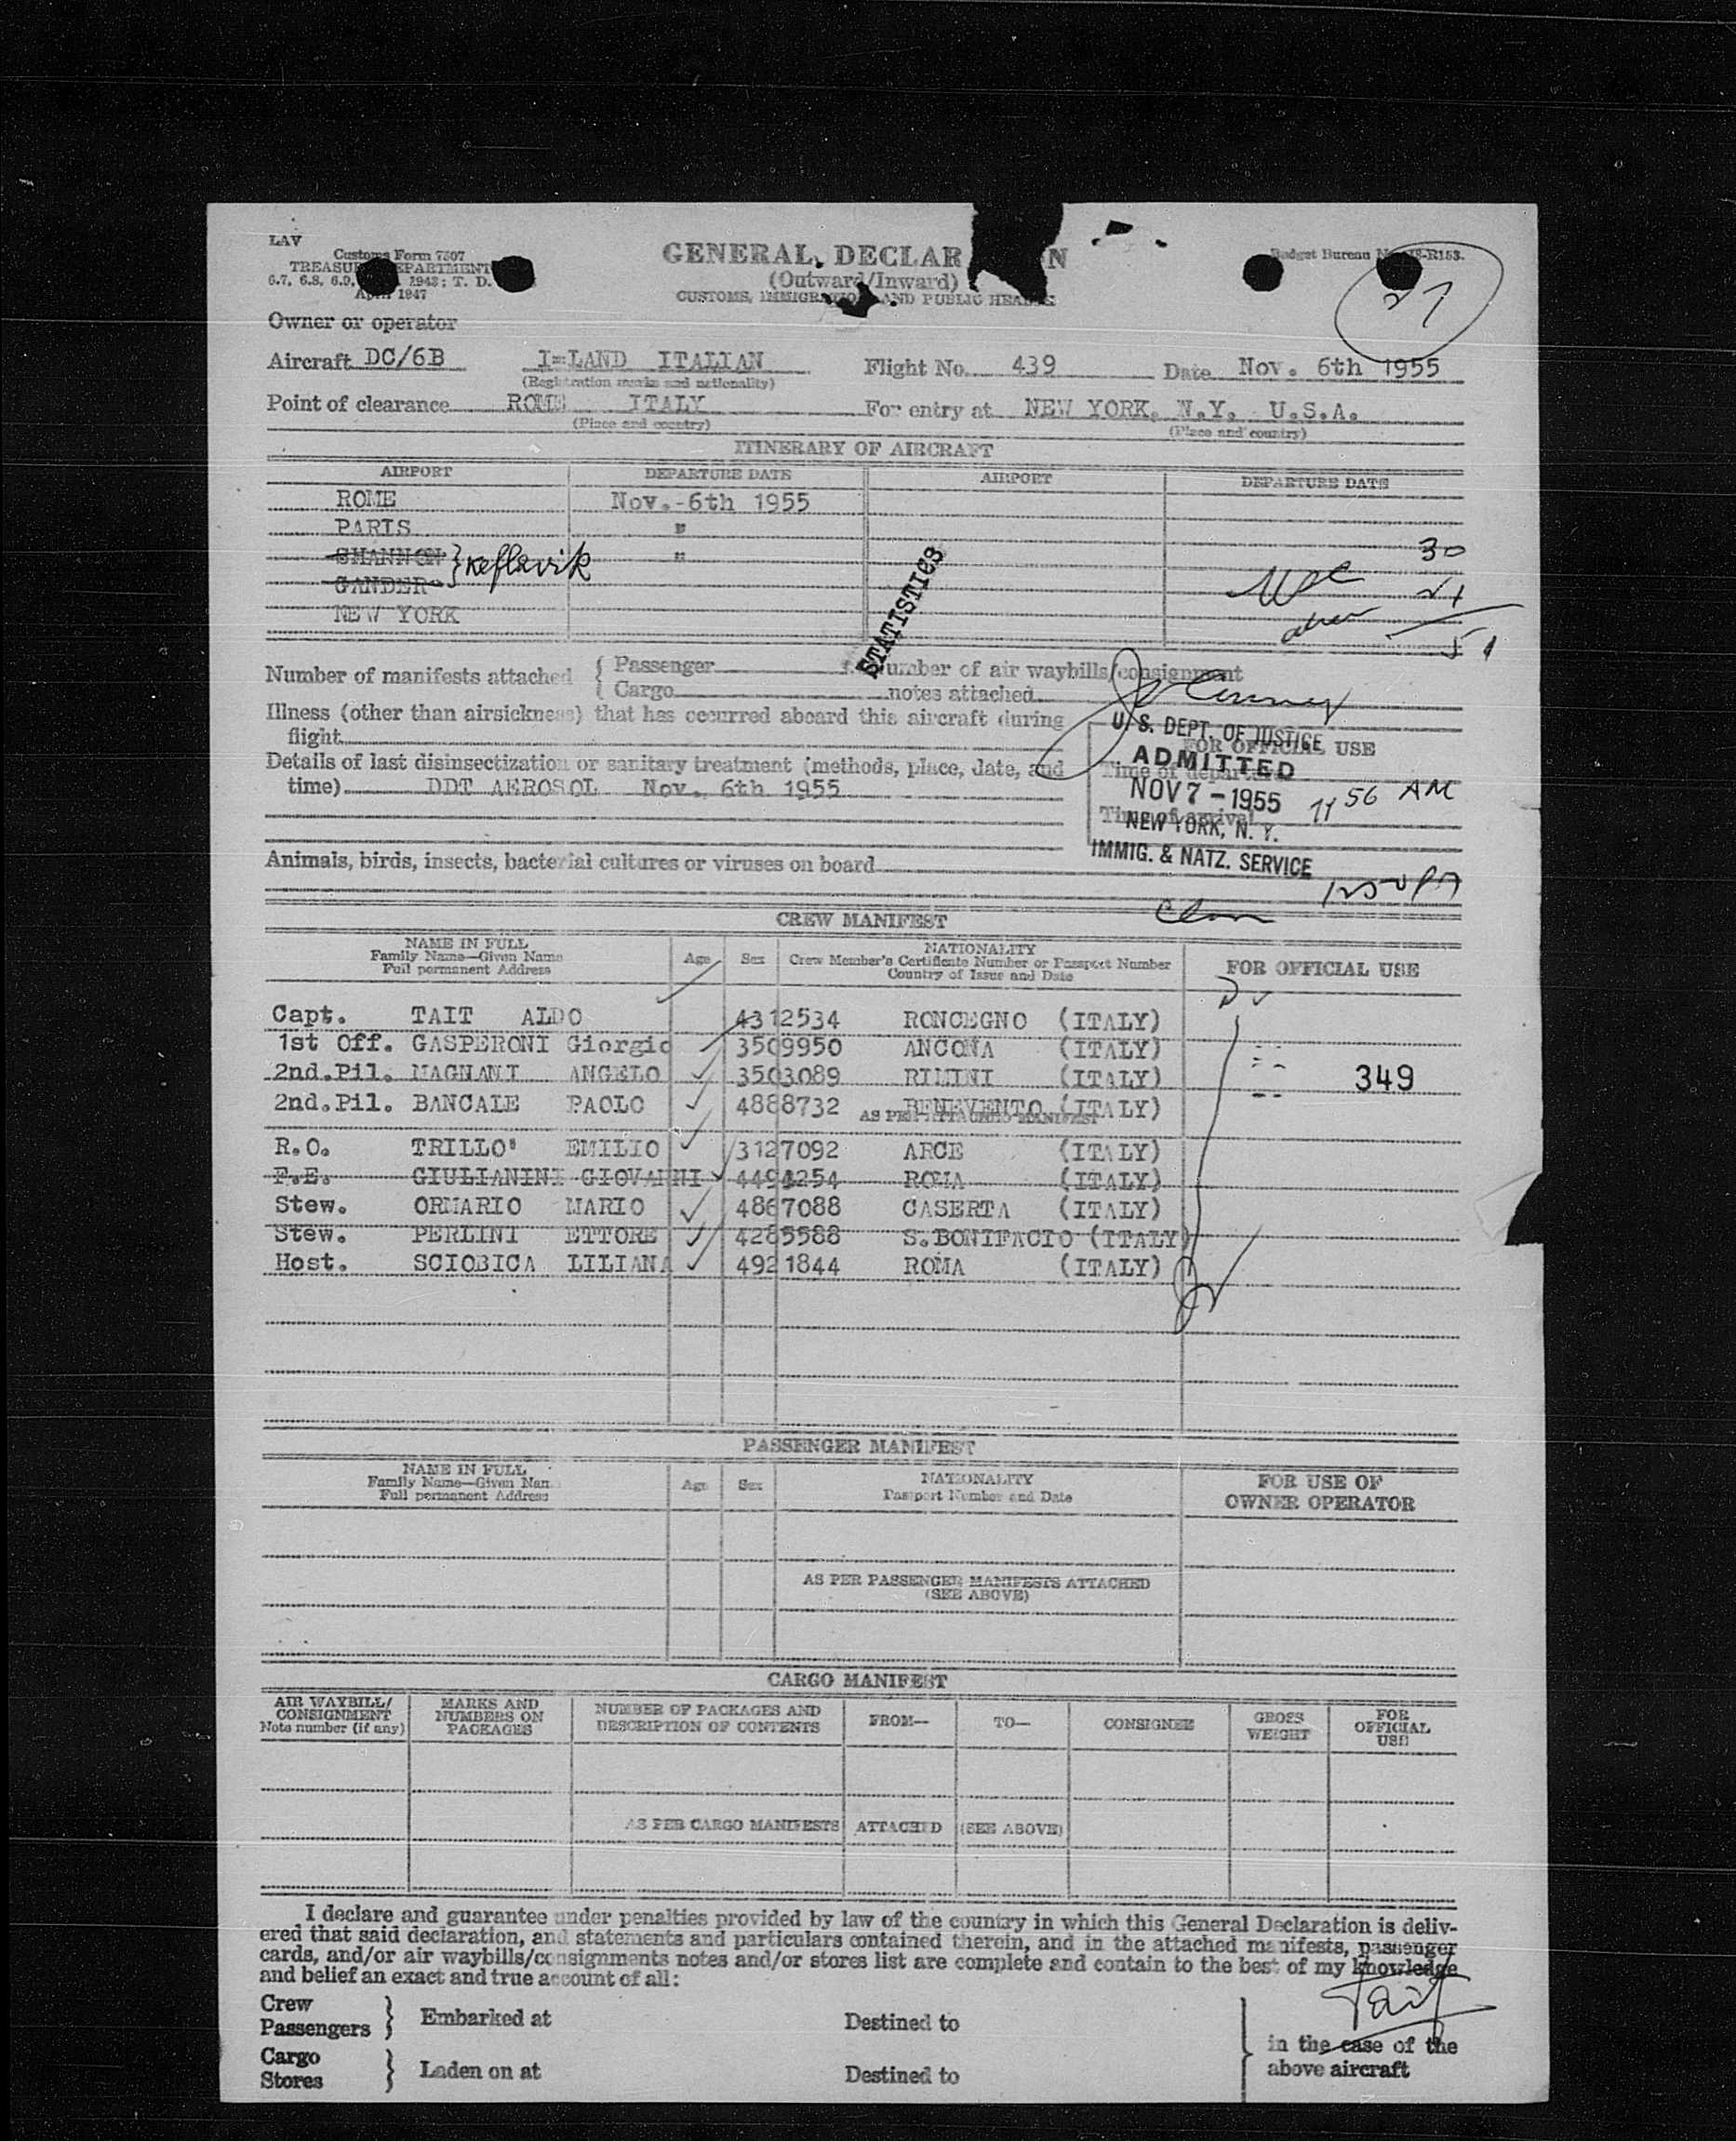 LAV
Customs Form 7507
TREASURY DEPARTMENT
6.7, 6.8, 6.9, 1943; T. D.
April 1947
GENERAL DECLAR N
(Outward/Inward)
CUSTOMS, IMMIGRATION AND PUBLIC HEALTH
Budget Bureau No. -R153.
27
Owner or operator
Aircraft DC/6B I=LAND ITALIAN Flight No. 439 Date Nov. 6th 1955
(Registration marks and nationality)
Point of clearance ROME ITALY For entry at NEW YORK, N.Y. U.S.A.
(Place and country) (Place and country)
ITINERARY OF AIRCRAFT
AIRPORT DEPARTURE DATE AIRPORT DEPARTURE DATE
ROME Nov.-6th 1955
PARIS "
SHANNON } Keflavik " 30
GANDER 21
NEW YORK
51
STATISTICS
Number of manifests attached { Passenger Number of air waybills/consignment
{ Cargo notes attached
Illness (other than airsickness) that has occurred aboard this aircraft during
flight
Details of last disinsectization or sanitary treatment (methods, place, date, and
time) DDT AEROSOL Nov. 6th 1955
FOR OFFICIAL USE
Time of departure
Time of arrival
U. S. DEPT. OF JUSTICE
ADMITTED
NOV 7 - 1955
NEW YORK, N. Y.
IMMIG. & NATZ. SERVICE
11 56 AM
Animals, birds, insects, bacterial cultures or viruses on board
CREW MANIFEST
NAME IN FULL
Family Name—Given Name
Full permanent Address
Age Sex
NATIONALITY
Crew Member's Certificate Number or Passport Number
Country of Issue and Date
FOR OFFICIAL USE
Capt. TAIT ALDO 4312534 RONCEGNO (ITALY)
1st Off. GASPERONI Giorgio 3509950 ANCONA (ITALY)
2nd.Pil. MAGNANI ANGELO 3503089 RIMINI (ITALY) 349
2nd.Pil. BANCALE PAOLO 4888732 BENEVENTO (ITALY)
AS PER ATTACHED MANIFEST
R.O. TRILLO' EMILIO 3127092 ARCE (ITALY)
F.E. GIULIANINI GIOVANNI 4494254 ROMA (ITALY)
Stew. ORMARIO MARIO 4867088 CASERTA (ITALY)
Stew. PERLINI ETTORE 4285588 S.BONIFACIO (ITALY)
Host. SCIOBICA LILIANA 4921844 ROMA (ITALY)
PASSENGER MANIFEST
NAME IN FULL
Family Name—Given Nam
Full permanent Address
Age Sex
NATIONALITY
Passport Number and Date
FOR USE OF
OWNER OPERATOR
AS PER PASSENGER MANIFESTS ATTACHED
(SEE ABOVE)
CARGO MANIFEST
AIR WAYBILL/
CONSIGNMENT
Note number (if any)
MARKS AND
NUMBERS ON
PACKAGES
NUMBER OF PACKAGES AND
DESCRIPTION OF CONTENTS
FROM— TO— CONSIGNEE
GROSS
WEIGHT
FOR
OFFICIAL
USE
AS PER CARGO MANIFESTS ATTACHED (SEE ABOVE)
I declare and guarantee under penalties provided by law of the country in which this General Declaration is deliv-
ered that said declaration, and statements and particulars contained therein, and in the attached manifests, passenger
cards, and/or air waybills/consignments notes and/or stores list are complete and contain to the best of my knowledge
and belief an exact and true account of all:
Tait
Crew
Passengers } Embarked at Destined to
Cargo
Stores } Laden on at Destined to
} in the case of the
above aircraft